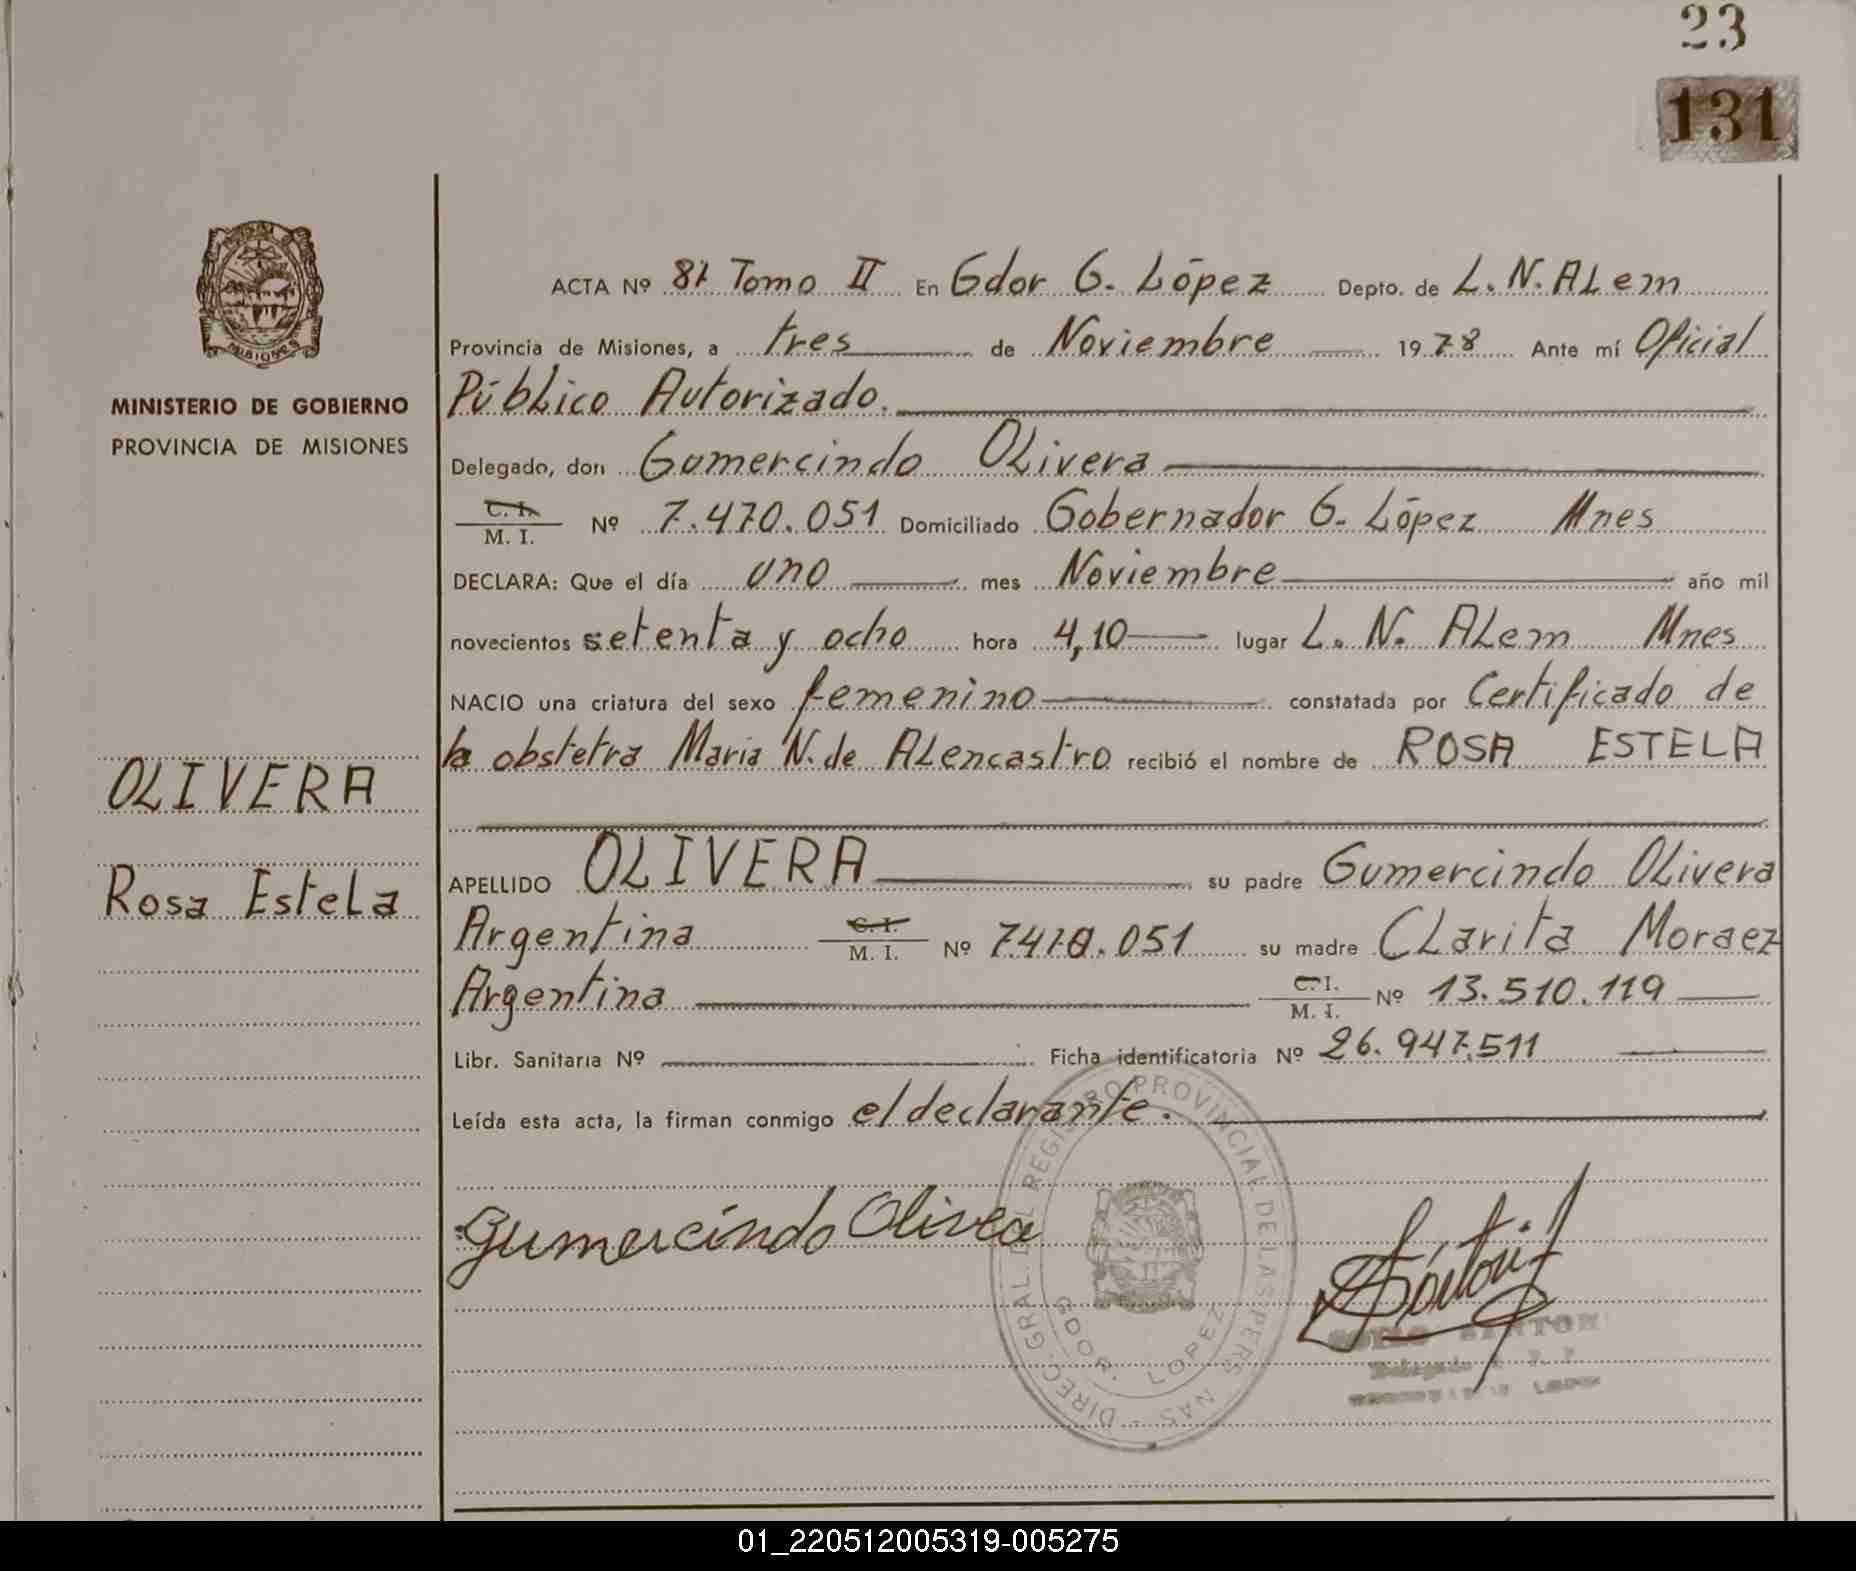 23
131
MISIONES
MINISTERIO DE GOBIERNO
PROVINCIA DE MISIONES
OLIVERA
Rosa Estela
ACTA Nº 81 Tomo II En Gdor G. López Depto. de L. N. ALem
Provincia de Misiones, a tres de Noviembre 1978 Ante mí Oficial
Público Autorizado.
Delegado, don Gumercindo OLivera
C. I. M. I. Nº 7.470.051 Domiciliado Gobernador G. López Mnes
DECLARA: Que el día uno mes Noviembre año mil
novecientos setenta y ocho hora 4,10 lugar L. N. ALem Mnes
NACIO una criatura del sexo femenino constatada por Certificado de
la obstetra Maria N. de ALencastro recibió el nombre de ROSA ESTELA
APELLIDO OLIVERA su padre Gumercindo OLivera
Argentina C. I. M. I. Nº 7.470.051 su madre CLarita Moraez
Argentina C. I. M. I. Nº 13.510.119
Libr. Sanitaria Nº Ficha identificatoria Nº 26.947.511
Leída esta acta, la firman conmigo el declarante.
Gumercindo Olivea
DIREC. GRAL. DEL REGISTRO PROVINCIAL DE LAS PERSONAS
GDOR. LOPEZ
Delegado
LOPEZ
01_220512005319-005275